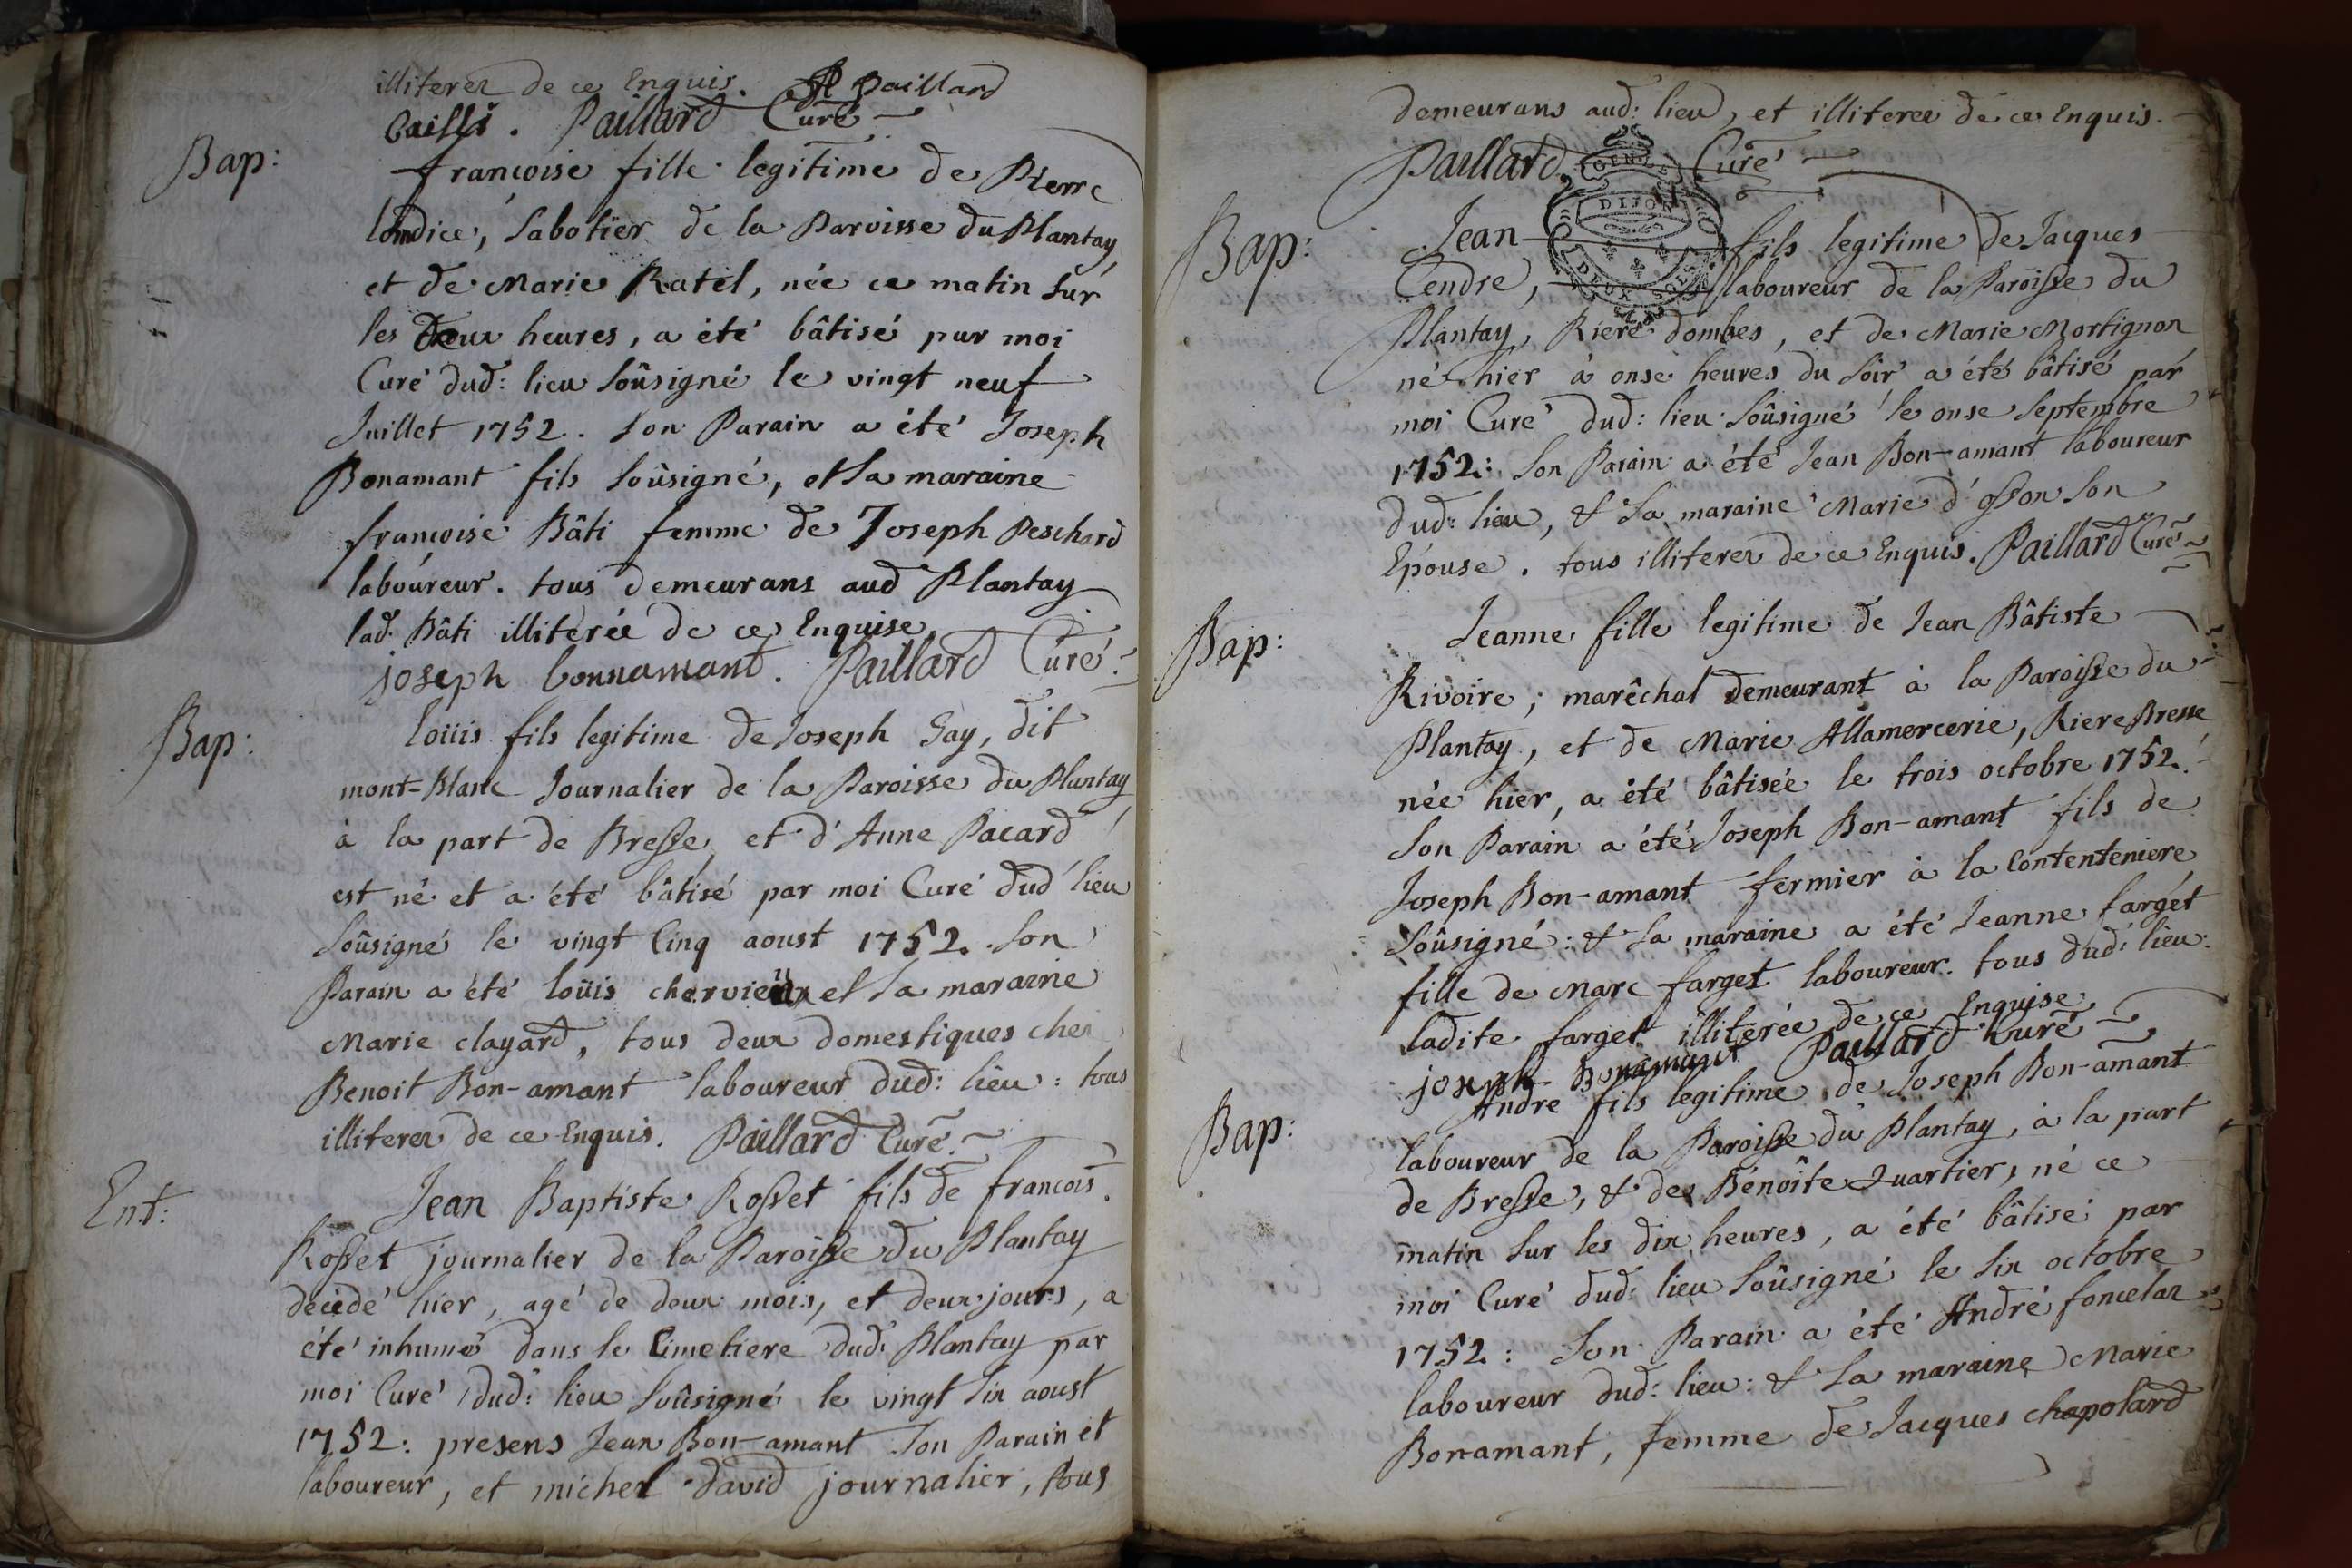 illiterez de ce Enquis. Paillard
Bailli. Paillard Curé
Bap:
françoise fille legitime de Pierre
sabotier de la Paroisse du Plantay
et de Marie Ratel, née ce matin sur
les Deux heures, a été bâtisé par moi
Curé dud: lieu soûsigné le vingt neuf
Juillet 1752. son Parain a été Joseph
Bonamant fils soûsigné, et sa maraine
françoise Bâti femme de Joseph Peschard
laboureur. tous demeurans aud Plantay
lad. Bâti illiterée de ce Enquise
joseph bonnamant. Paillard Curé
Bap:
loüis fils legitime de Joseph Gay, dit
mont-Blanc Journalier de la Paroisse du Plantay
à la part de Bresse, et d'Anne Pacard
est né et a été bâtisé par moi Curé dud lieu
soûsigné le vingt Cinq aoust 1752. son
Parain a été loüis chervieux et sa maraine
Marie clayard, tous deux domestiques chez
Benoit Bon-amant laboureur dud: lieu: tous
illiterez de ce Enquis. Paillard Curé
Ent:
Jean Baptiste Rosset fils de francois
Rosset journalier de la Paroisse du Plantay
decedé hier, agé de deux mois, et deux jours, a
été inhumé dans le Cimetiere dud: Plantay par
moi Curé dud: lieu soûsigné le vingt six aoust
1752: presens Jean Bon-amant son Parain et
laboureur, et michel David journalier, tous
demeurans aud: lieu, et illiterez de ce Enquis.
Paillard Curé
DIJON
DEUX SOLS
Bap:
Jean fils legitime de Jacques
Cendre, laboureur de la Paroisse du
Plantay, Riere dombes, et de Marie Mortignon
né hier à onse heures du soir a été bâtisé par
moi Curé dud: lieu soûsigné le onse septembre
1752: son Parain a été Jean Bon-amant laboureur
dud: lieu, & sa maraine Marie son
Epouse. tous illiterez de ce Enquis. Paillard Curé
Bap:
Jeanne fille legitime de Jean Bâtiste
Rivoire; marêchal demeurant à la Paroisse du
Plantay, et de Marie Allamercerie, Riere Bresse
née hier, a été bâtisée le trois octobre 1752.
son Parain a été Joseph Bon-amant fils de
Joseph Bon-amant fermier à la Contenteniere
soûsigné: & sa maraine a été Jeanne farget
fille de Marc farget laboureur. tous dud: lieu.
ladite farget illiterée de ce Enquise
joseph Bonamant Paillard Curé
Bap:
André fils legitime de Joseph Bon-amant
laboureur de la Paroisse du Plantay, à la part
de Bresse, & de Bénoîte Quartier, né ce
matin sur les dix heures, a été bâtisé par
moi Curé dud: lieu soûsigné le six octobre
1752: son Parain a été André foncelar
laboureur dud: lieu: & sa maraine Marie
Bonamant, femme de Jacques chapolard